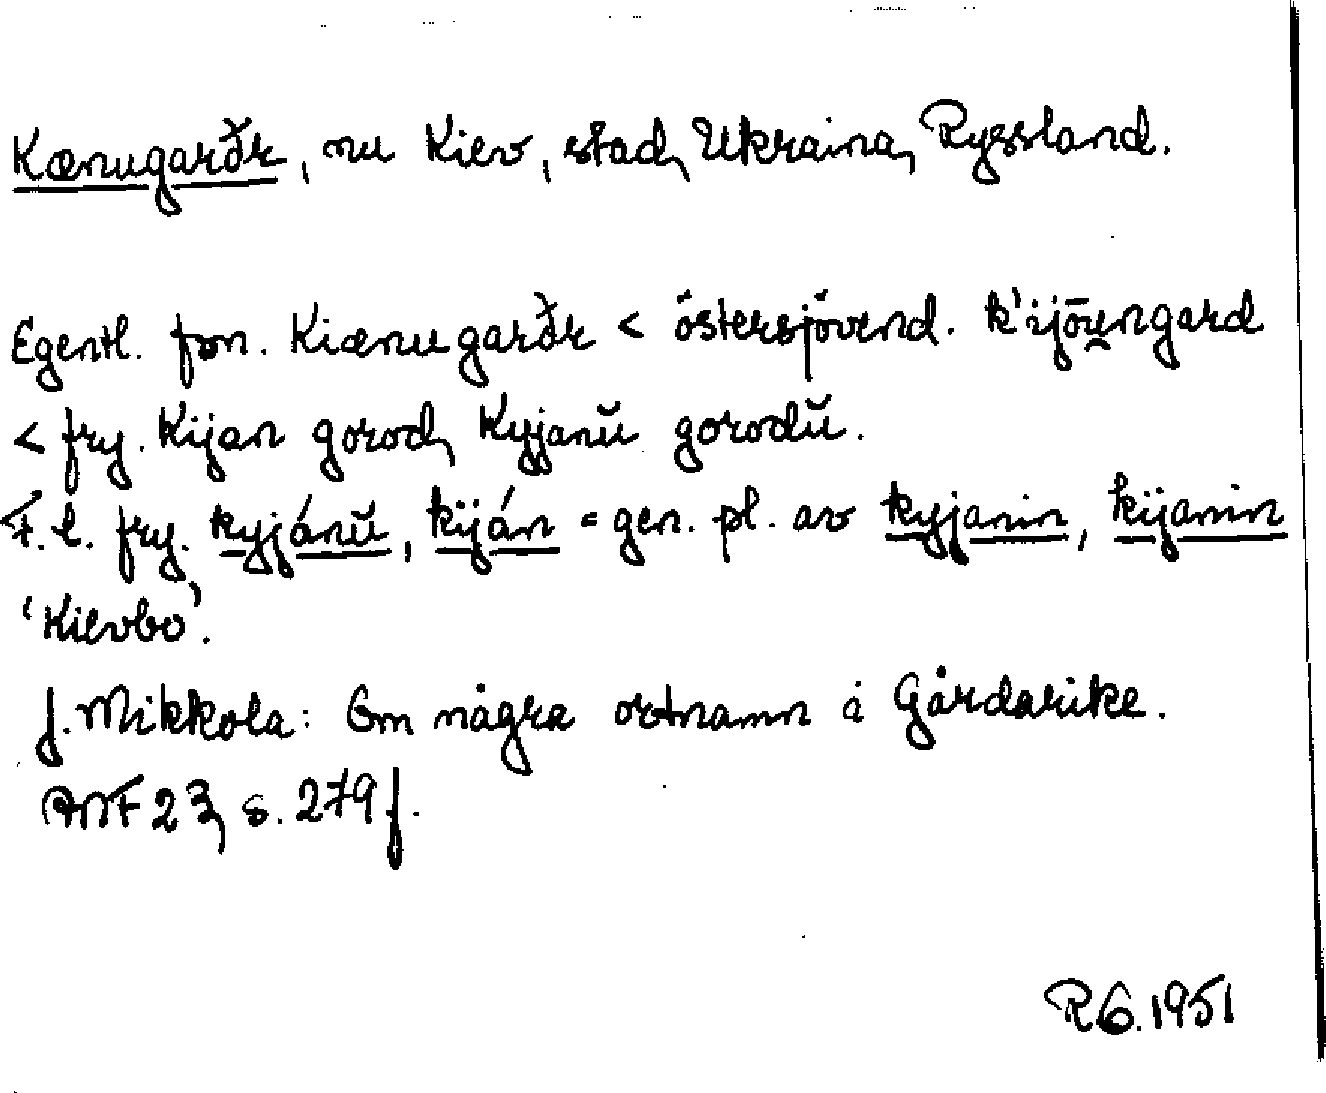 Kænugarðr, nu Kiev, stad, Ukraina, Ryssland.
Egentl. fvn. Kiænugarðr < östersjövend. k'ijōu̯ngard
< fry. Kijan gorod, Kyjanŭ gorodŭ.
F. l. fry. kyjánŭ, kiján = gen. pl. av kyjanin, kijanin
'Kievbo'.
J. Mikkola: Om några ortnamn i Gårdarike.
ANF 23, s. 279 f.
RG. 1951